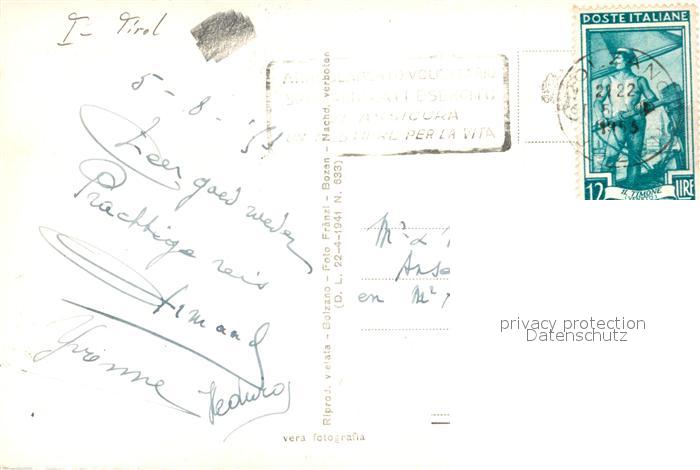 I- Tirol
5-8-'53
Zeer goed weder
Prachtige reis
Armand
Yvonne
vera fotografia
Riprod. vietata - Bolzano - Foto Fränzl - Bozen - Nachd. verboten
(D. L. 22-4-1941 N. 633)
ESERCITO
ASSICURA
UN MESTIERE PER LA VITA
POSTE ITALIANE
21 22
12 LIRE
IL TIMONE
(VENETO)
Mr &
Anse
en Mr
privacy protection
Datenschutz